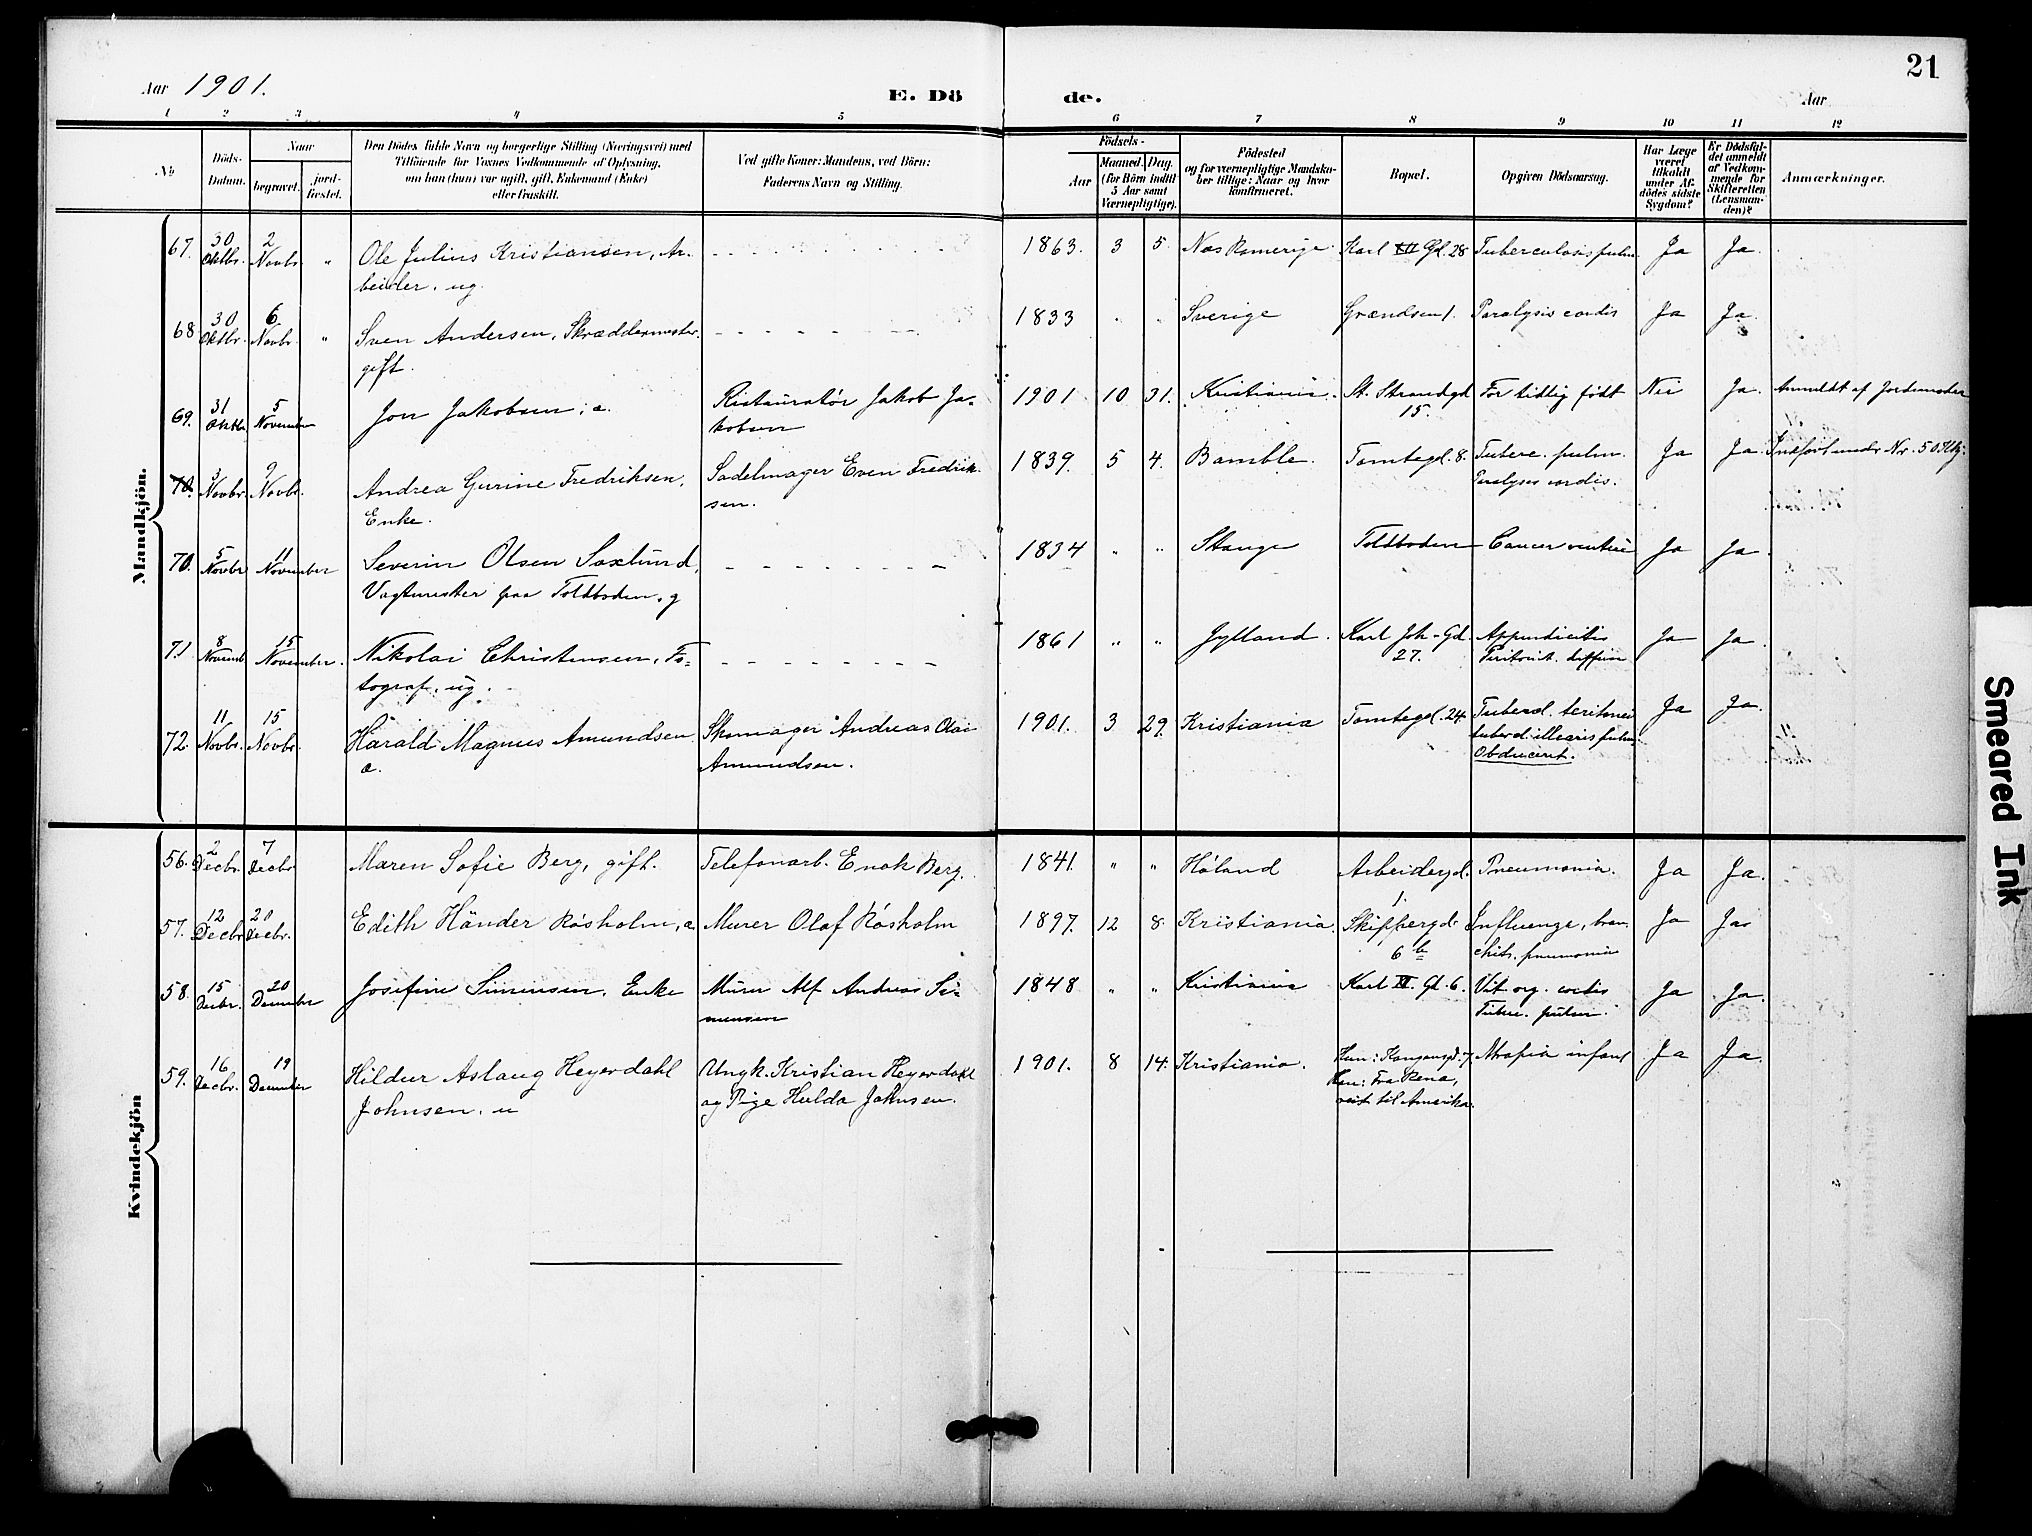 21
Aar 1901.
E. Dö de.
Aar
1 2 3 4 5 6 7 8 9 10 11 12
No
Döds-
Datum.
Naar
begravet.
jord-
fæstet.
Den Dödes fulde Navn og borgerlige Stilling (Næringsvei) med
Tilföiende for Voxnes Vedkommende af Oplysning,
om han (hun) var ugift, gift, Enkemand (Enke)
eller fraskilt.
Ved gifte Koner: Mandens, ved Börn:
Faderens Navn og Stilling.
Födsels-
Aar
Maaned. Dag.
(for Börn indtil
5 Aar samt
Værnepligtige).
Födested
og for værnepligtige Mandska-
ber tillige: Naar og hvor
konfirmeret.
Bopæl.
Opgiven Dödsaarsag.
Har Læge
været
tilkaldt
under Af-
dödes sidste
Sygdom?
Er Dödsfal-
det anmeldt
af Vedkom-
mende for
Skifteretten
(Lensman-
den)?
Anmærkninger.
Mandkjön.
67. 30 Oktbr. 2 Novbr. " Ole Julius Kristiansen, Ar-
beider. ug. 1863. 3 5. Nes Romerige Karl XII Gd. 28 Tuberculosis pulm. Ja Ja.
68 30 Oktbr. 6 Novbr. " Sven Andersen, Skræddermester.
gift. 1833 " " Sverige Grændsen 1. Paralysis cordis Ja Ja.
69. 31 Oktbr. 5 November Jon Jakobsen, e. Ristauratør Jakob Ja-
kobsen 1901 10 31. Kristiania. St. Strandgd
15. For tidlig født Nei Ja. Anmeldt af Jordemoder
70. 3 Novbr. 9 Novbr. Andrea Gurine Fredriksen,
Enke. Sadelmager Even Fredrik-
sen. 1839. 5 4. Bamble. Tomtegd. 8. Tuberc. pulm.
Paralysis cordis. Ja Ja. Indført under Nr. 50 Kvkj.
70. 5 Novbr 11 November Severin Olsen Saxlund,
Vagtmester paa Toldboden, g 1834 " " Stange Toldboden Cancer ventric Ja Ja.
71. 8 Novemb. 15 November. Nikolai Christensen, Fo-
tograf, ug. 1861 " " Jylland. Karl Joh-Gd.
27. Appendicitis
Peritonit. diffusa Ja Ja.
72. 11 Novbr. 15 Novbr. Harald Magnus Amundsen
e. Skomager Andreas Olai
Amundsen. 1901. 3 29. Kristiania Tomtegd. 24.
Obduceret. Ja Ja.
Kvindekjön
56. 2 Decbr. 7 Decbr. Maren Sofie Berg, gift. Telefonarb. Enok Berg. 1841. " " Høland Arbeidergd.
1. Pneumonia. Ja Ja.
57. 12 Decbr. 20 Decbr. Edith Händer Røsholm, e Murer Olaf Røsholm 1897. 12 8. Kristiania. Skippergd.
6 b Influenza, bron-
chit. pneumonia Ja Ja.
58. 15 Decbr. 20 December Josefine Simensen, Enke Murer Alf Andreas Si-
mensen 1848 " " Kristiania Karl XII. Gd. 6. Vit. org. cordis
Tuberc. pulm. Ja Ja.
59. 16 Decbr. 19 December Hildur Aslaug Heyerdahl
Johnsen. u Ungk. Kristian Heyerdahl
og Pige Hulda Johnsen. 1901. 8 14. Kristiania. Hun: Kongensgd. 7
Han: Fra Rena,
reist til Amerika. Atrofia infant Ja Ja.
Smeared Ink